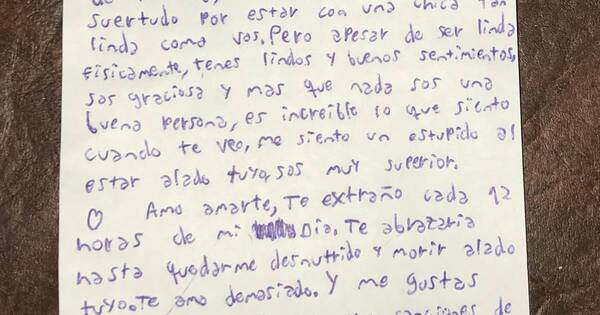 suertudo por estar con una chica tan
linda como vos. Pero apesar de ser linda
fisicamente, tenes lindos y buenos sentimientos,
sos graciosa y mas que nada sos una
buena persona, es increible lo que siento
cuando te veo, me siento un estupido al
estar alado tuyo, sos muy superior.
Amo amarte, Te extraño cada 12
horas de mi Dia. Te abrazaria
hasta quedarme desnutrido y morir alado
tuyo. Te amo demasiado. Y me gustas
de